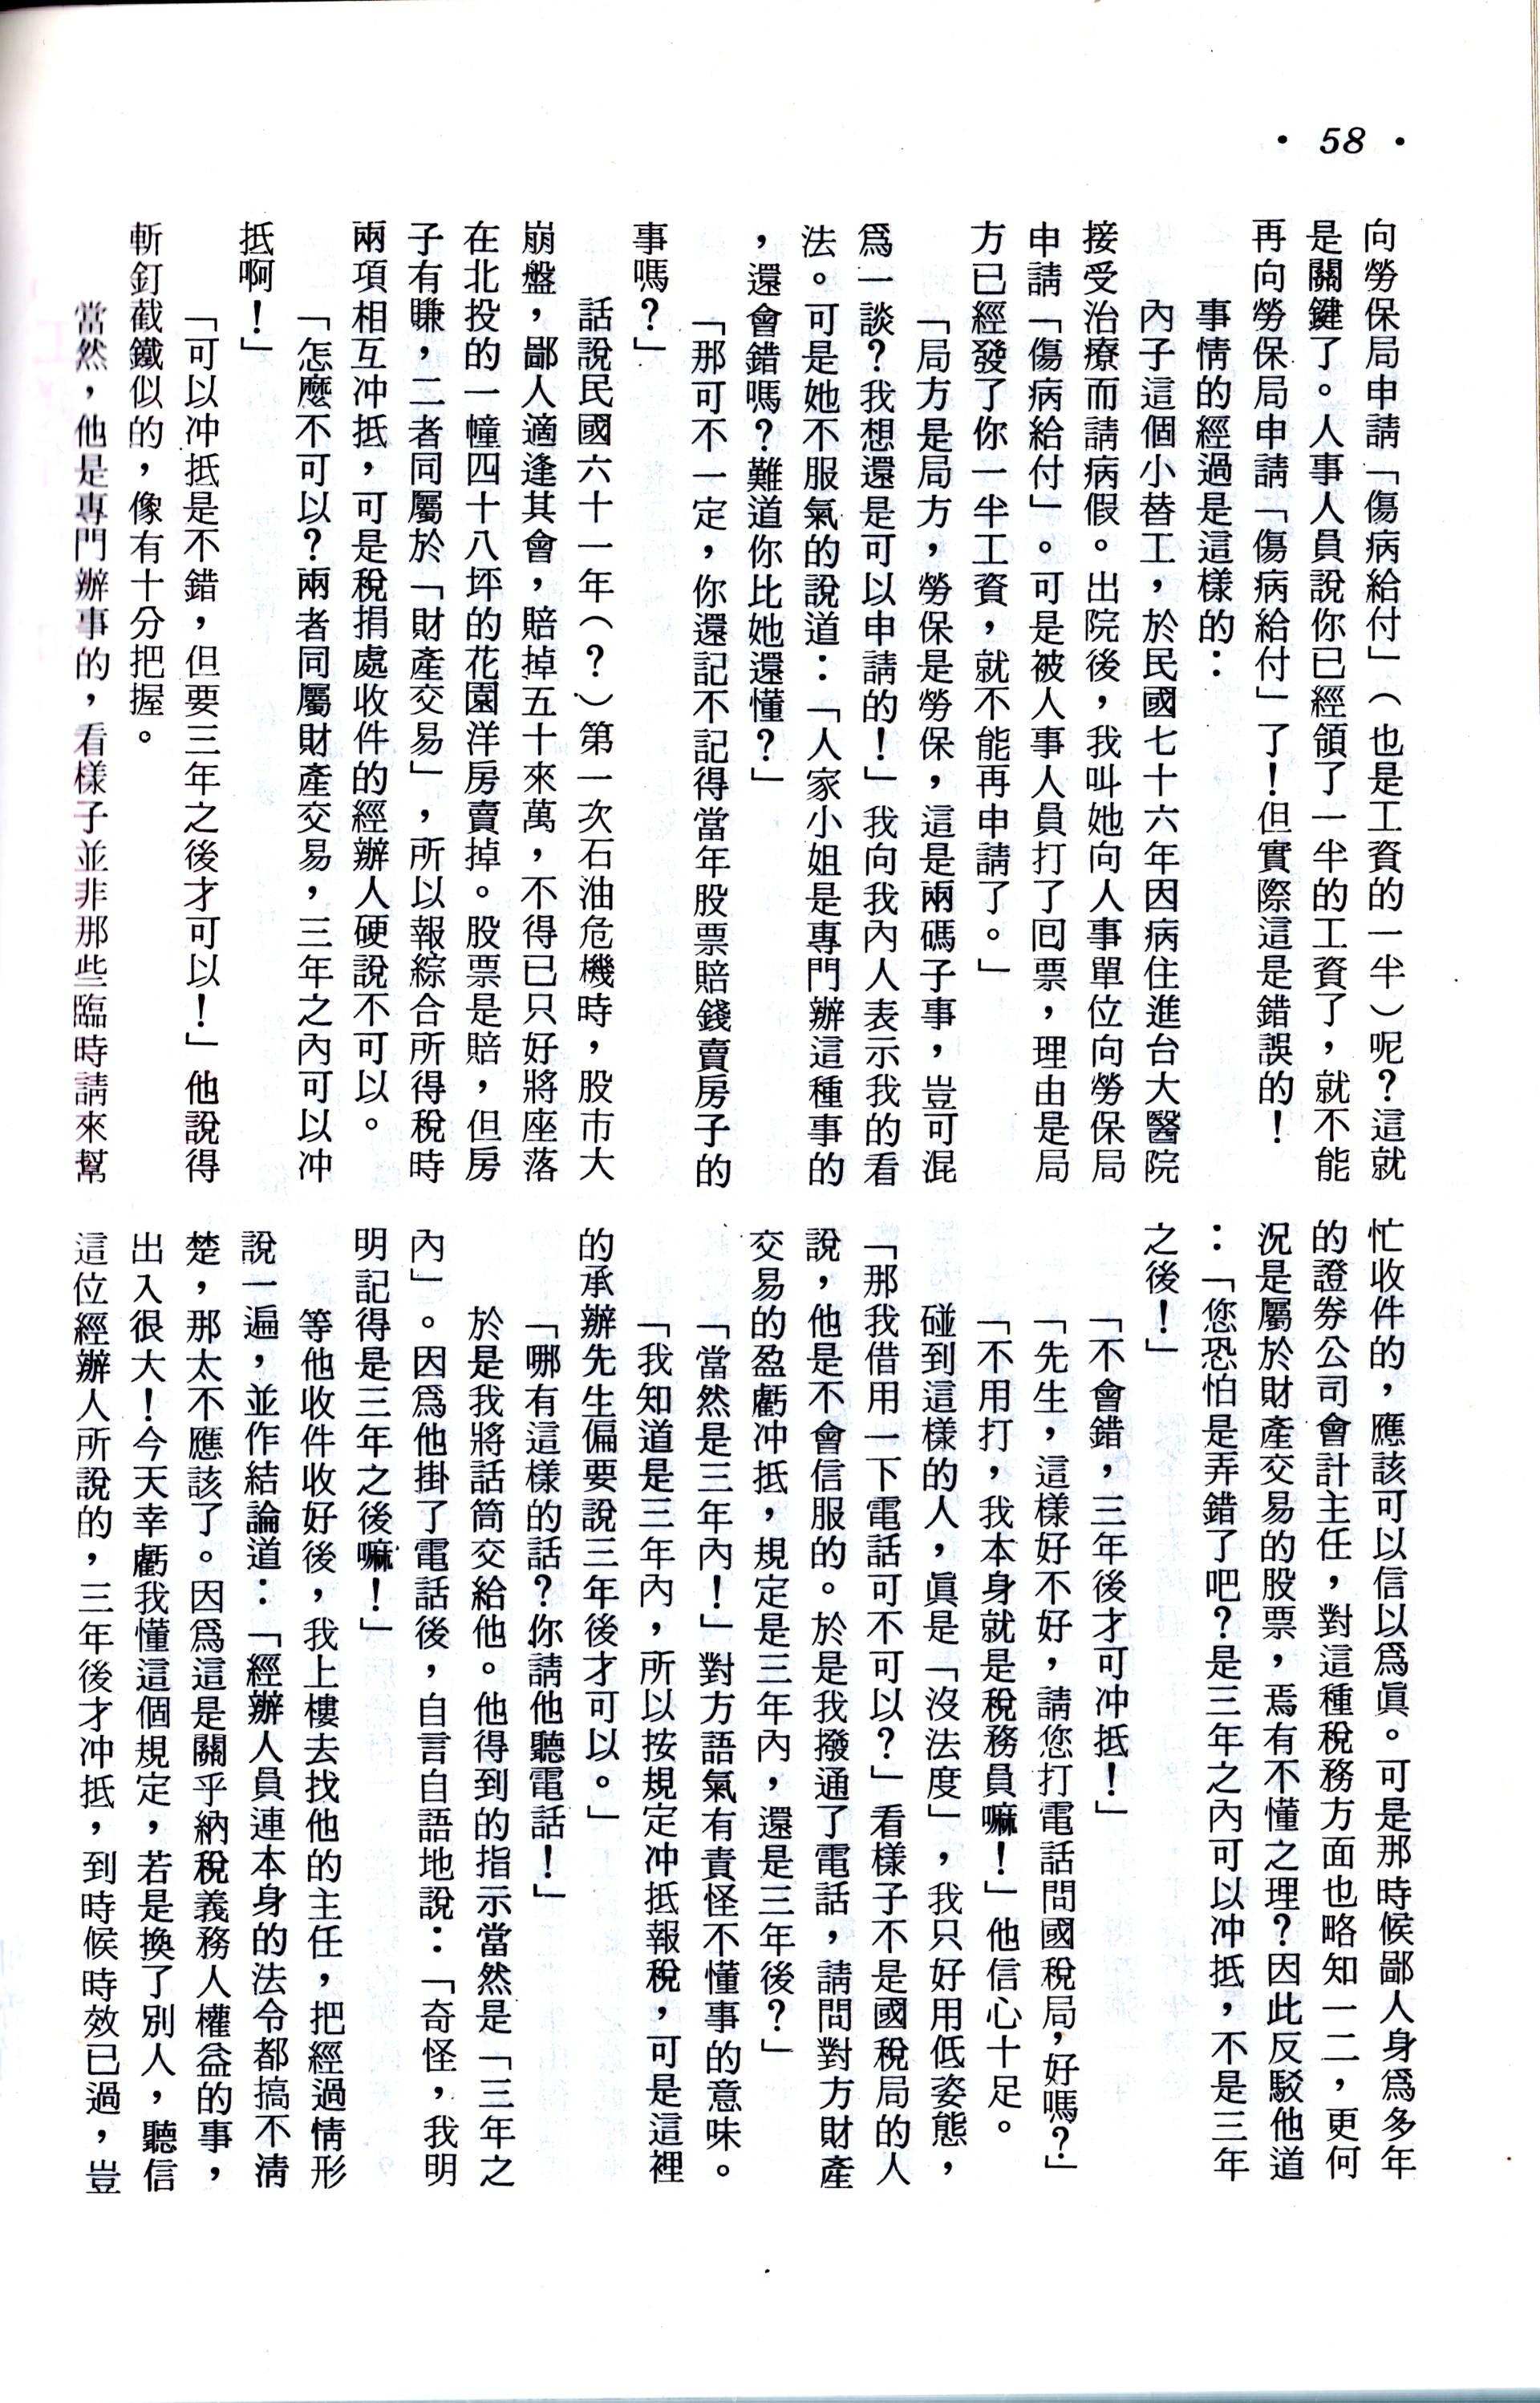 • 58 •
向勞保局申請「傷病給付」（也是工資的一半）呢？這就
是關鍵了。人事人員說你已經領了一半的工資了，就不能
再向勞保局申請「傷病給付」了！但實際這是錯誤的！
事情的經過是這樣的：
內子這個小替工，於民國七十六年因病住進台大醫院
接受治療而請病假。出院後，我叫她向人事單位向勞保局
申請「傷病給付」。可是被人事人員打了回票，理由是局
方已經發了你一半工資，就不能再申請了。」
「局方是局方，勞保是勞保，這是兩碼子事，豈可混
爲一談？我想還是可以申請的！」我向我內人表示我的看
法。可是她不服氣的說道：「人家小姐是專門辦這種事的
，還會錯嗎？難道你比她還懂？」
「那可不一定，你還記不記得當年股票賠錢賣房子的
事嗎？」
話說民國六十一年（？）第一次石油危機時，股市大
崩盤，鄙人適逢其會，賠掉五十來萬，不得已只好將座落
在北投的一幢四十八坪的花園洋房賣掉。股票是賠，但房
子有賺，二者同屬於「財產交易」，所以報綜合所得稅時
兩項相互冲抵，可是稅捐處收件的經辦人硬說不可以。
「怎麼不可以？兩者同屬財產交易，三年之內可以冲
抵啊！」
「可以冲抵是不錯，但要三年之後才可以！」他說得
斬釘截鐵似的，像有十分把握。
當然，他是專門辦事的，看樣子並非那些臨時請來幫
忙收件的，應該可以信以爲眞。可是那時候鄙人身爲多年
的證券公司會計主任，對這種稅務方面也略知一二，更何
況是屬於財產交易的股票，焉有不懂之理？因此反駁他道
：「您恐怕是弄錯了吧？是三年之內可以冲抵，不是三年
之後！」
「不會錯，三年後才可冲抵！」
「先生，這樣好不好，請您打電話問國稅局，好嗎？」
「不用打，我本身就是稅務員嘛！」他信心十足。
碰到這樣的人，眞是「沒法度」，我只好用低姿態，
「那我借用一下電話可不可以？」看樣子不是國稅局的人
說，他是不會信服的。於是我撥通了電話，請問對方財產
交易的盈虧冲抵，規定是三年內，還是三年後？」
「當然是三年內！」對方語氣有責怪不懂事的意味。
「我知道是三年內，所以按規定冲抵報稅，可是這裡
的承辦先生偏要說三年後才可以。」
「哪有這樣的話？你請他聽電話！」
於是我將話筒交給他。他得到的指示當然是「三年之
內」。因爲他掛了電話後，自言自語地說：「奇怪，我明
明記得是三年之後嘛！」
等他收件收好後，我上樓去找他的主任，把經過情形
說一遍，並作結論道：「經辦人員連本身的法令都搞不清
楚，那太不應該了。因爲這是關乎納稅義務人權益的事，
出入很大！今天幸虧我懂這個規定，若是換了別人，聽信
這位經辦人所說的，三年後才冲抵，到時候時效已過，豈